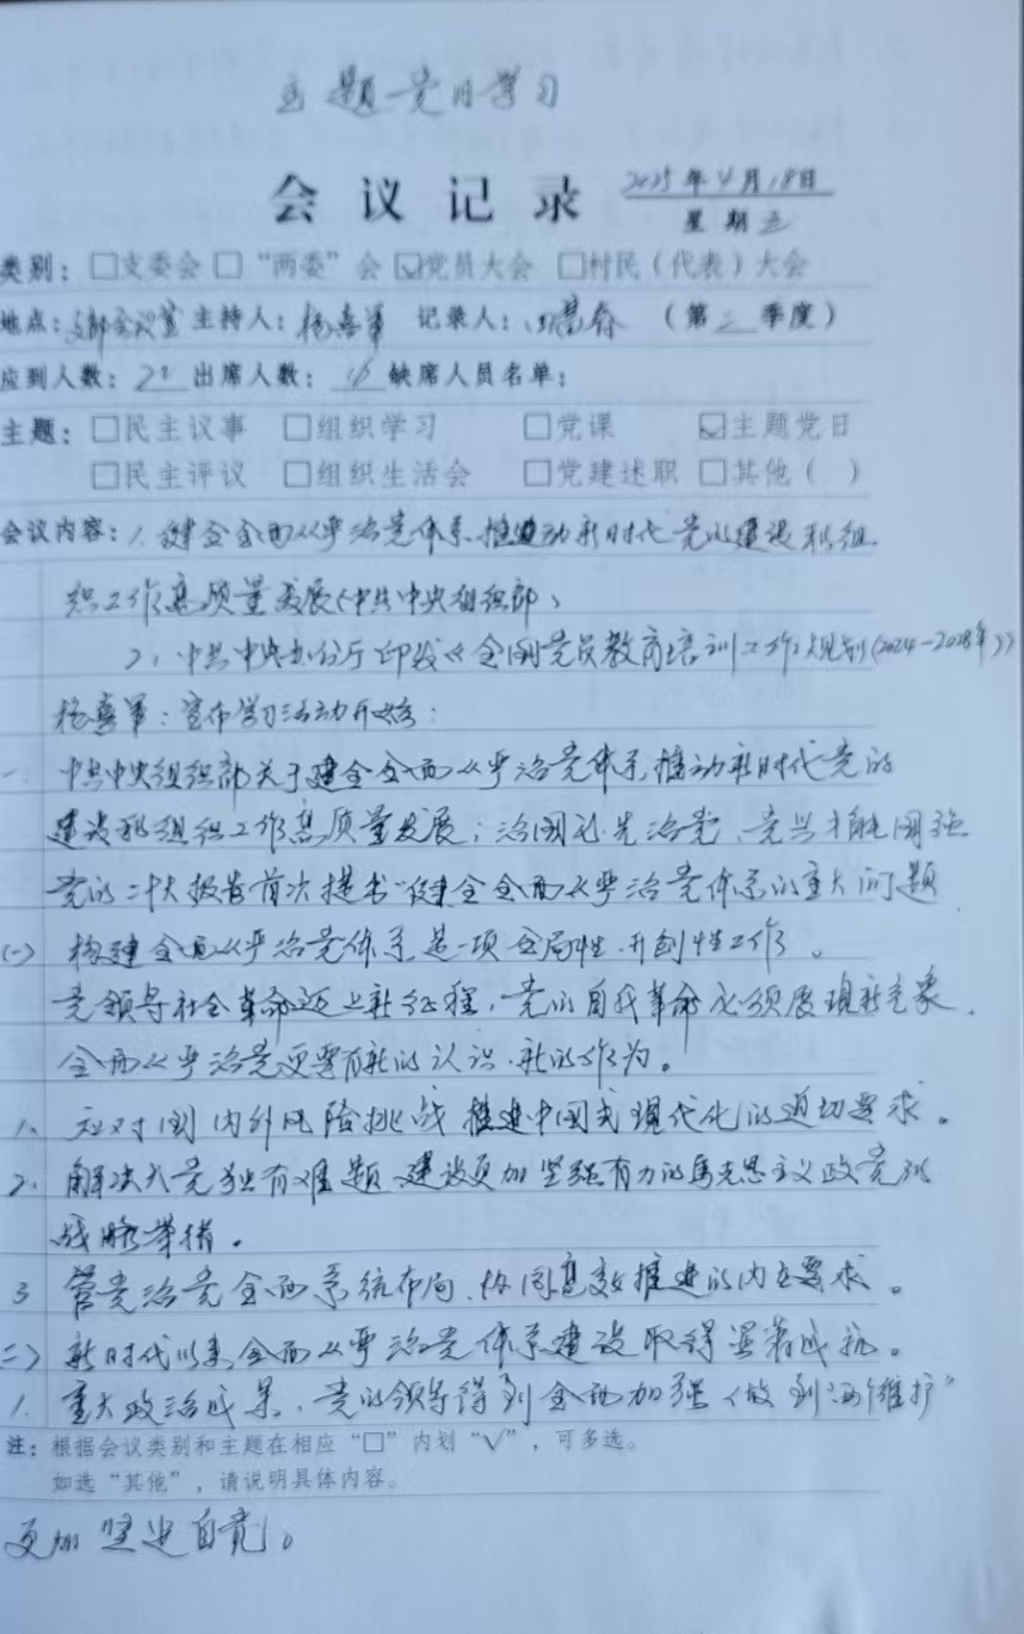 主题党日学习
会议记录 2025年4月18日
星期五
类别：□支委会 □“两委”会 ☑党员大会 □村民（代表）大会
地点：支部会议室 主持人：杨喜军 记录人： （第二季度）
应到人数： 出席人数： 缺席人员名单：
主题：□民主议事 □组织学习 □党课 ☑主题党日
□民主评议 □组织生活会 □党建述职 □其他（ ）
会议内容：1、健全全面从严治党体系推进动新时代党的建设和组
织工作高质量发展（中共中央组织部）
2、中共中央办公厅印发《全国党员教育培训工作规划(2024-2028年)》
杨喜军：宣布学习活动开始：
一、中共中央组织部关于建全全面从严治党体系推动新时代党的
建设和组织工作高质量发展；治国必先治党、党兴才能国强
党的二十大报告首次提出“健全全面从严治党体系的重大问题
(一) 构建全面从严治党体系是一项全局性开创性工作。
党领导社会革命迈上新征程，党的自我革命必须展现新气象，
全面从严治党更要有新的认识、新的作为。
1、应对国内外风险挑战推进中国式现代化的迫切要求。
2、解决大党独有难题、建设更加坚强有力的马克思主义政党的
战略举措。
3 管党治党全面系统布局、协同高效推进的内在要求。
二) 新时代以来全面从严治党体系建设取得显著成就。
1、重大政治成果、党的领导得到全面加强《做到“两个维护”
注：根据会议类别和主题在相应“□”内划“√”，可多选。
如选“其他”，请说明具体内容。
更加坚定自觉。